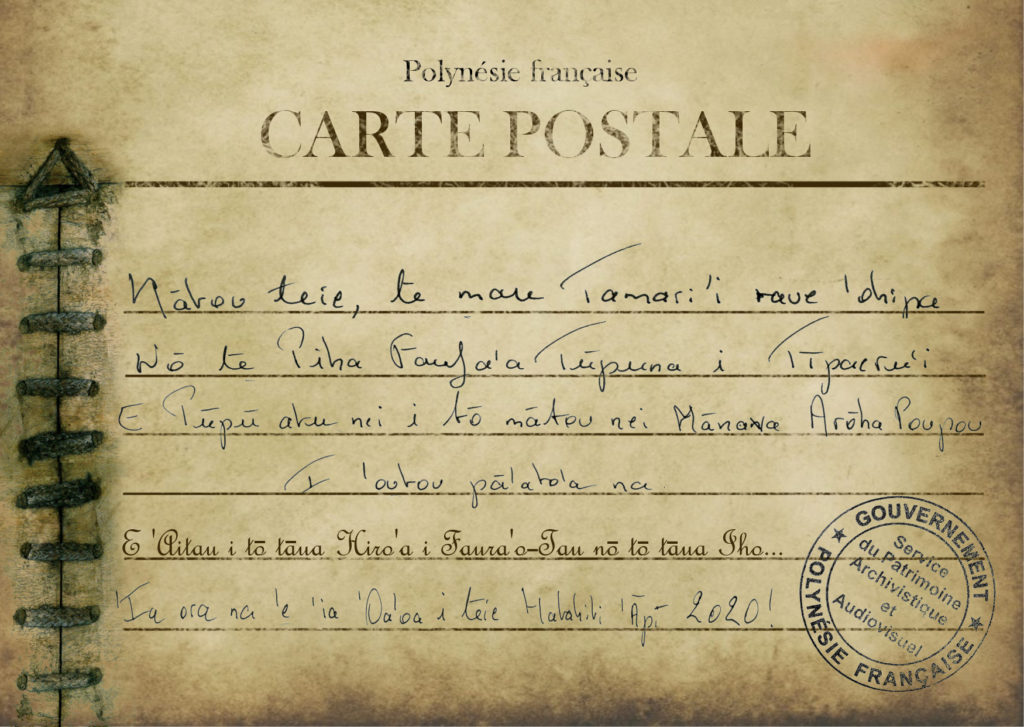 Polynésie française
CARTE POSTALE
Nātou teie, te mau Tamari'i rave 'ohipa
Nō te Piha Faufa'a Tūpuna i Tīpaeru'i
E Pūpū atu nei i tō mātou nei Mānava Arōha Poupou
I 'outou pā'āto'a na
E 'Aitau i tō tāua Hiro'a i Faura'o-Tau nō tō tāua Iho...
'Ia ora na 'e 'ia 'Oa'oa i teie Matahiti 'Āpī 2020!
★ GOUVERNEMENT ★
Service
du Patrimoine
Archivistique
et
Audiovisuel
POLYNÉSIE FRANÇAISE